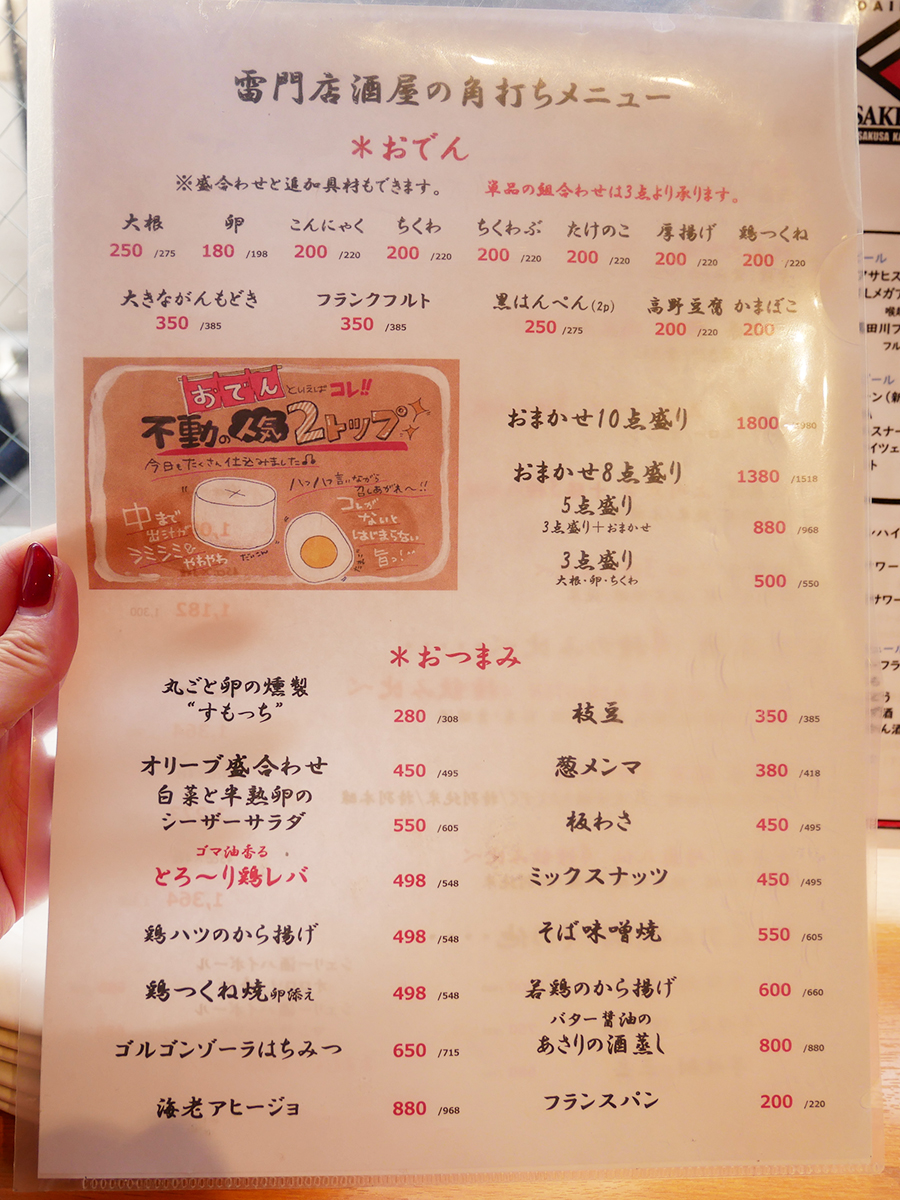 雷門店酒屋の角打ちメニュー
＊おでん
※盛合わせと追加具材もできます。 単品の組合わせは3点より承ります。
大根 卵 こんにゃく ちくわ ちくわぶ たけのこ 厚揚げ 鶏つくね
250 /275 180 /198 200 /220 200 /220 200 /220 200 /220 200 /220 200 /220
大きながんもどき フランクフルト 黒はんぺん(2p) 高野豆腐 かまぼこ
350 /385 350 /385 250 /275 200 /220 200
おでん といえば コレ!!
不動の人気2トップ
今日もたくさん仕込みました♫
ハフハフ言いながら
召しあがれ〜!!
中まで
出汁が
シミシミ
やわやわ
だいこん
コレが
ないと
はじまらない
旨っ!
おまかせ10点盛り 1800 /1980
おまかせ8点盛り 1380 /1518
5点盛り
3点盛り＋おまかせ 880 /968
3点盛り
大根・卵・ちくわ 500 /550
＊おつまみ
丸ごと卵の燻製
“すもっち” 280 /308
枝豆 350 /385
オリーブ盛合わせ 450 /495
葱メンマ 380 /418
白菜と半熟卵の
シーザーサラダ 550 /605
板わさ 450 /495
ゴマ油香る
とろ〜り鶏レバ 498 /548
ミックスナッツ 450 /495
鶏ハツのから揚げ 498 /548
そば味噌焼 550 /605
鶏つくね焼 卵添え 498 /548
若鶏のから揚げ 600 /660
ゴルゴンゾーラはちみつ 650 /715
バター醤油の
あさりの酒蒸し 800 /880
海老アヒージョ 880 /968
フランスパン 200 /220